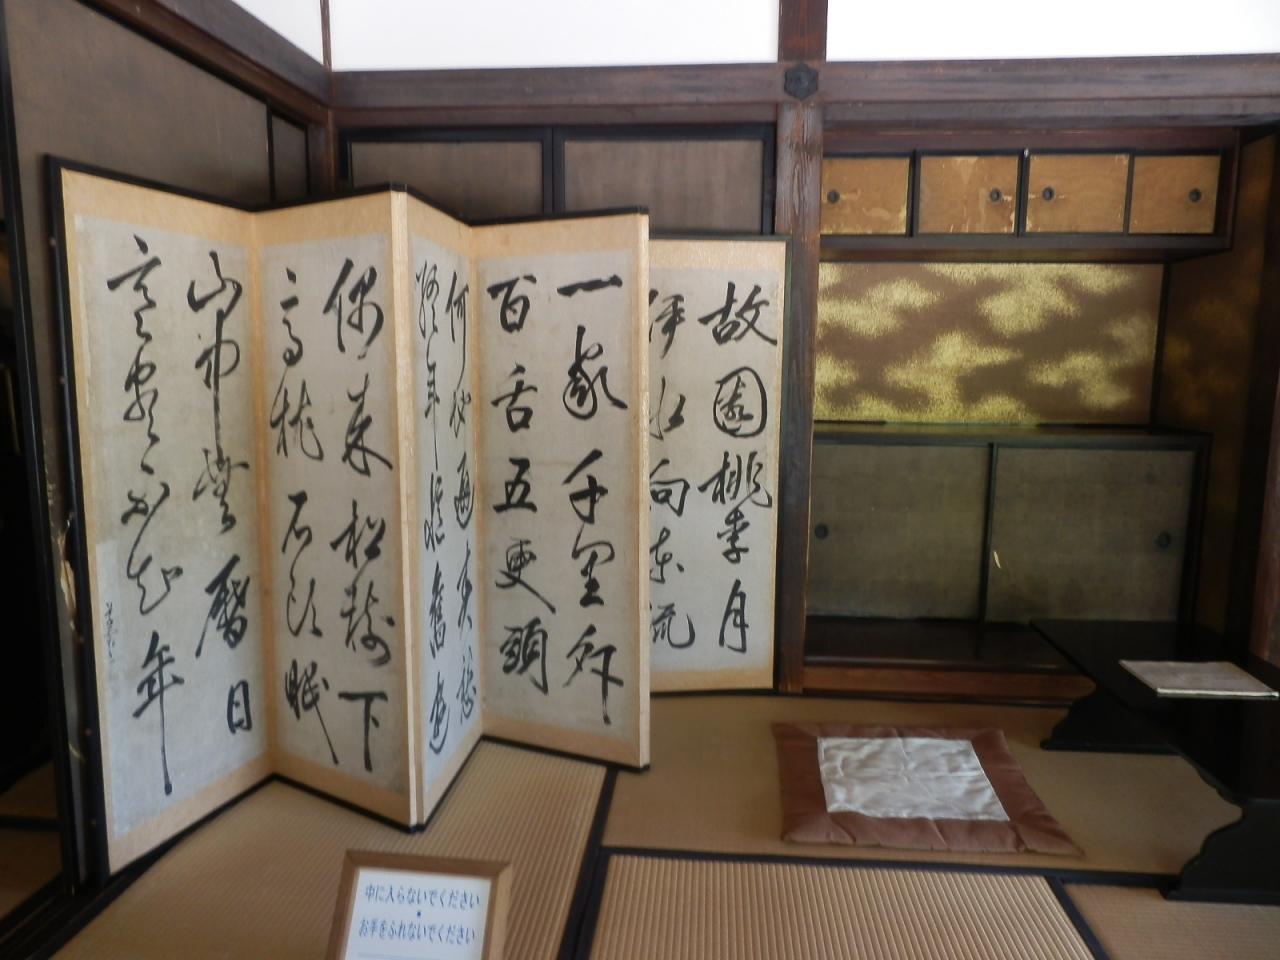 故園桃李月
伊水向東流
一家千里外
百舌五更頭
偶来松樹下
高枕石頭眠
山中無曆日
寒盡不知年
中に入らないでください
・
お手をふれないでください